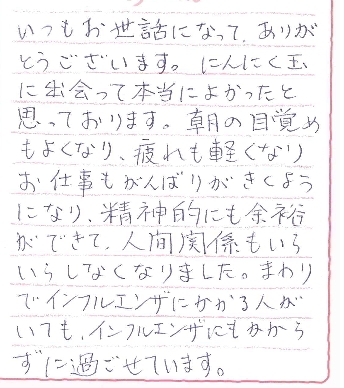 いつもお世話になって、ありが
とうございます。にんにく玉
に出会って本当によかったと
思っております。朝の目覚め
もよくなり、疲れも軽くなり
お仕事もがんばりがきくよう
になり、精神的にも余裕
ができて、人間関係もいら
いらしなくなりました。まわり
でインフルエンザにかかる人が
いても、インフルエンザにもかから
ずに過ごせています。